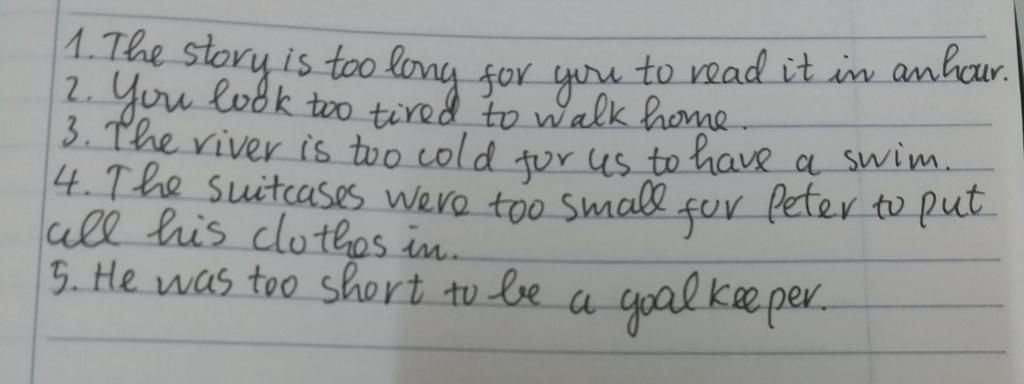 1. The story is too long for you to read it in an hour.
2. You look too tired to walk home.
3. The river is too cold for us to have a swim.
4. The suitcases were too small for Peter to put
all his clothes in.
5. He was too short to be a goalkeeper.